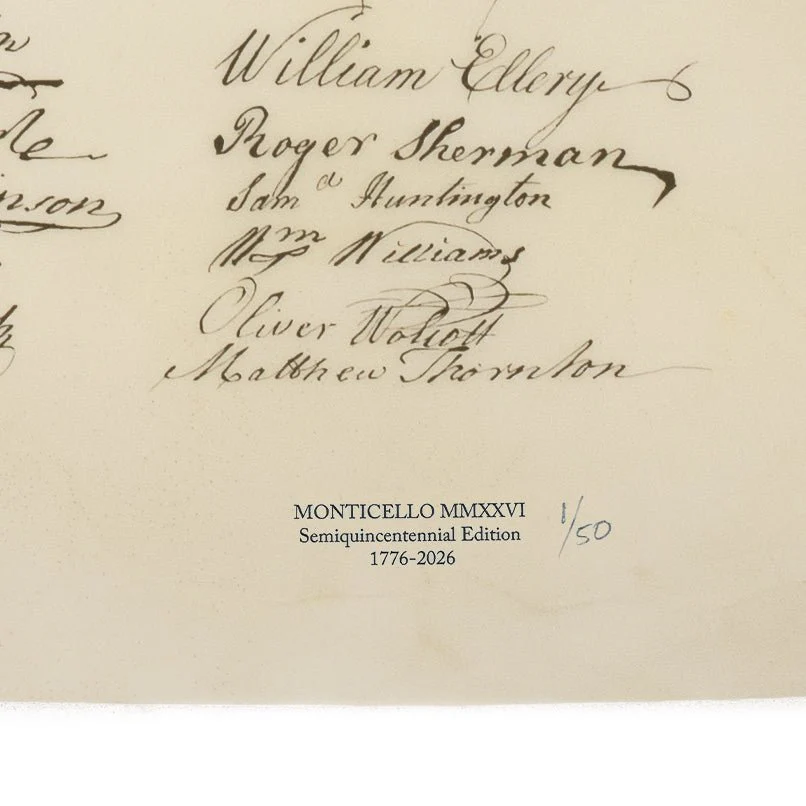 William Ellery
Roger Sherman
Sam^d Huntington
W^m Williams
Oliver Wolcott
Matthew Thornton
MONTICELLO MMXXVI
Semiquincentennial Edition
1776-2026
1/50